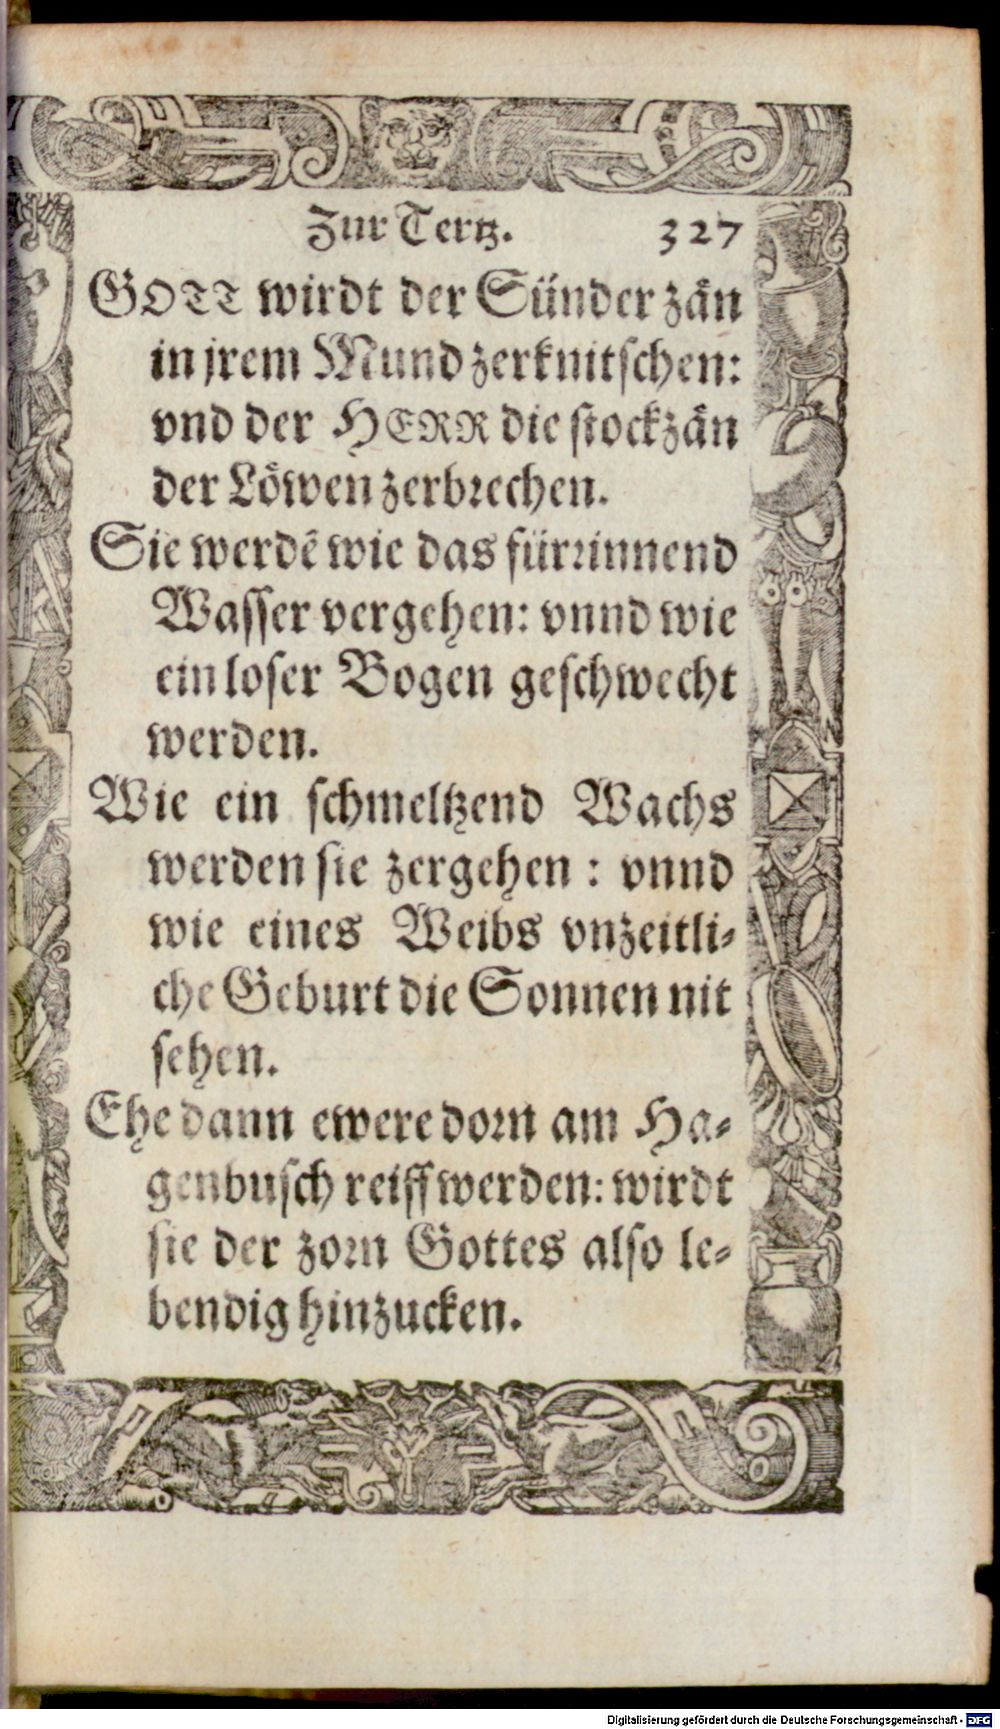 Zur Tertz. 327
GOTT wirdt der Sünder zän
in jrem Mund zerknitschen:
vnd der HERR die stockzän
der Löwen zerbrechen.
Sie werdẽ wie das fürrinnend
Wasser vergehen: vnnd wie
ein loser Bogen geschwecht
werden.
Wie ein schmeltzend Wachs
werden sie zergehen: vnnd
wie eines Weibs vnzeitli-
che Geburt die Sonnen nit
sehen.
Ehe dann ewere dorn am Ha-
genbusch reiff werden: wirdt
sie der zorn Gottes also le-
bendig hinzucken.
Digitalisierung gefördert durch die Deutsche Forschungsgemeinschaft - DFG